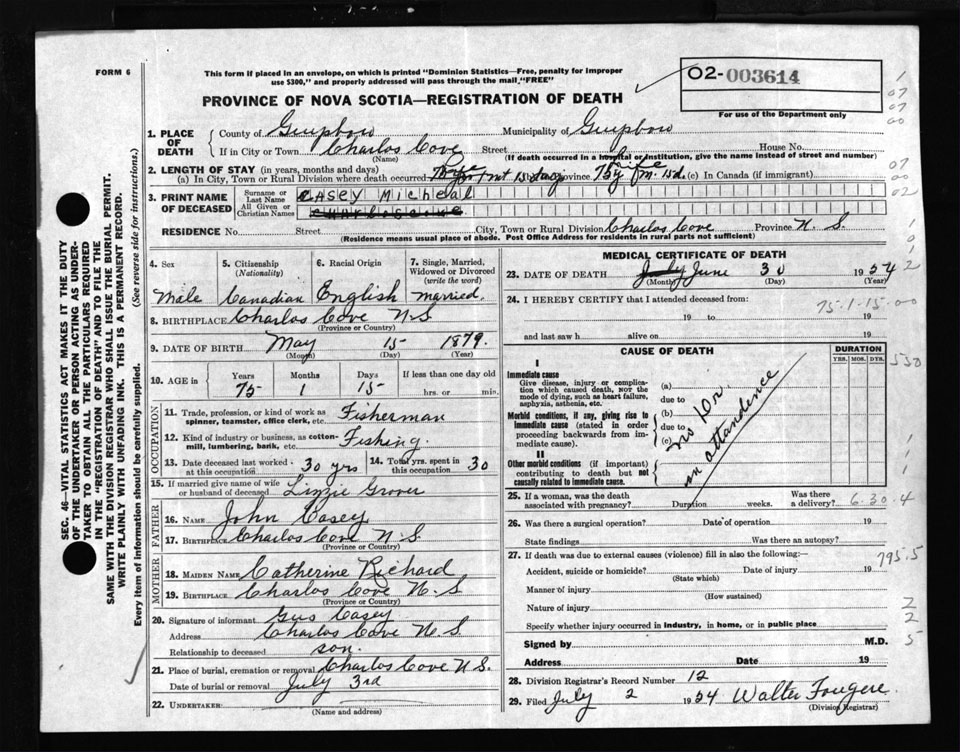 FORM 6
This form if placed in an envelope, on which is printed "Dominion Statistics—Free, penalty for improper
use $300," and properly addressed will pass through the mail "FREE"
02-003614
For use of the Department only
PROVINCE OF NOVA SCOTIA—REGISTRATION OF DEATH
1. PLACE OF DEATH
County of Guysboro Municipality of Guysboro
If in City or Town Charlos Cove Street House No.
(Name) (If death occurred in a hospital or institution, give the name instead of street and number)
2. LENGTH OF STAY (in years, months and days)
(a) In City, Town or Rural Division where death occurred 15 days Province Life 75y 1m. 15d. (c) In Canada (if immigrant)
3. PRINT NAME OF DECEASED
Surname or Last Name CASEY Micheal
All Given or Christian Names
RESIDENCE No. Street City, Town or Rural Division Charlos Cove Province N. S.
(Residence means usual place of abode. Post Office Address for residents in rural parts not sufficient)
4. Sex 5. Citizenship (Nationality) 6. Racial Origin 7. Single, Married, Widowed or Divorced (write the word)
Male Canadian English Married.
8. BIRTHPLACE Charlos Cove N S
(Province or Country)
9. DATE OF BIRTH May 15 1879.
(Month) (Day) (Year)
10. AGE in Years Months Days If less than one day old
75 1 15 hrs. or min.
OCCUPATION
11. Trade, profession, or kind of work as spinner, teamster, office clerk, etc. Fisherman
12. Kind of industry or business, as cotton-mill, lumbering, bank, etc. Fishing.
13. Date deceased last worked at this occupation 30 yrs 14. Total yrs. spent in this occupation 30
15. If married give name of wife or husband of deceased Lizzie Grover
FATHER
16. NAME John Casey
17. BIRTHPLACE Charlos Cove N. S.
(Province or Country)
MOTHER
18. MAIDEN NAME Catherine Richard
19. BIRTHPLACE Charlos Cove N. S
(Province or Country)
20. Signature of informant Gus Casey
Address Charlos Cove N S.
Relationship to deceased son.
21. Place of burial, cremation or removal Charlos Cove N S.
Date of burial or removal July 3rd
22. UNDERTAKER:
(Name and address)
MEDICAL CERTIFICATE OF DEATH
23. DATE OF DEATH July June 30 1954
(Month) (Day)
24. I HEREBY CERTIFY that I attended deceased from:
75-1-15-00
19 to 19
and last saw h alive on 19
CAUSE OF DEATH DURATION
YRS. MOS. DYS.
I
Immediate cause
Give disease, injury or complication which caused death, NOT the mode of dying, such as heart failure, asphyxia, asthenia, etc.
(a)
due to
Morbid conditions, if any, giving rise to immediate cause (stated in order proceeding backwards from immediate cause).
(b)
due to
(c)
II
Other morbid conditions (if important) contributing to death but not causally related to immediate cause.
no Dr. in attandence
530
25. If a woman, was the death associated with pregnancy? Duration weeks. Was there a delivery?
6-30-4
26. Was there a surgical operation? Date of operation 19
State findings Was there an autopsy?
27. If death was due to external causes (violence) fill in also the following:—
795.5
Accident, suicide or homicide? Date of injury 19
(State which)
Manner of injury
(How sustained)
Nature of injury
Specify whether injury occurred in industry, in home, or in public place
Signed by M.D.
Address Date 19
28. Division Registrar's Record Number 12
29. Filed July 2 1954 Walter Fougere.
(Division Registrar)
SEC. 46—VITAL STATISTICS ACT MAKES IT THE DUTY
OF THE UNDERTAKER OR PERSON ACTING AS UNDER-
TAKER TO OBTAIN ALL THE PARTICULARS REQUIRED
IN THE "REGISTRATION OF DEATH" AND TO FILE THE
SAME WITH THE DIVISION REGISTRAR WHO SHALL ISSUE THE BURIAL PERMIT.
WRITE PLAINLY WITH UNFADING INK. THIS IS A PERMANENT RECORD.
Every item of information should be carefully supplied. (See reverse side for instructions.)